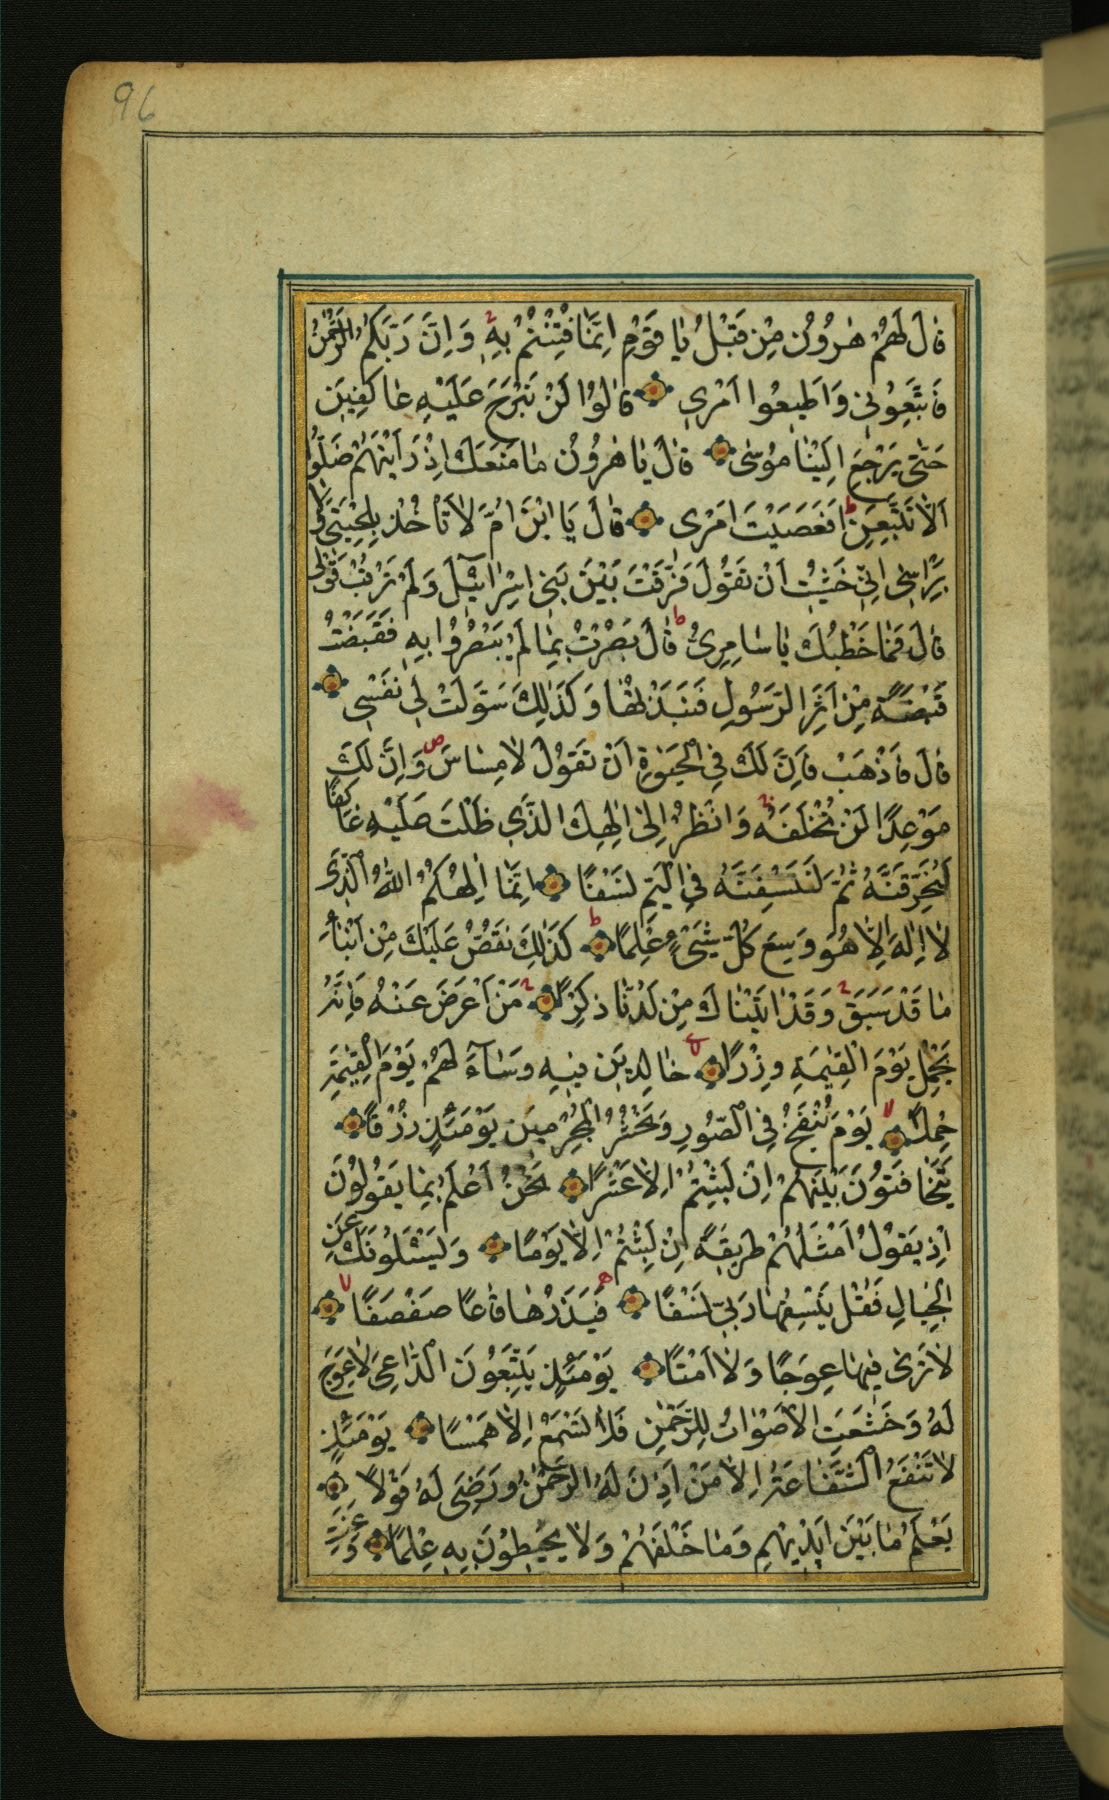 96
قَالَ لَهُمْ هٰرُونُ مِنْ قَبْلُ يَا قَوْمِ اِنَّمَا فُتِنْتُمْ بِهٖ وَاِنَّ رَبَّكُمُ الرَّحْمٰنُ
فَاتَّبِعُونِي وَاَطِيعُوا اَمْرِي قَالُوا لَنْ نَبْرَحَ عَلَيْهِ عَاكِفِينَ
حَتّٰى يَرْجِعَ اِلَيْنَا مُوسٰى قَالَ يَا هٰرُونُ مَا مَنَعَكَ اِذْ رَاَيْتَهُمْ ضَلُّوا
اَلَّا تَتَّبِعَنِ اَفَعَصَيْتَ اَمْرِى قَالَ يَا ابْنَ اُمَّ لَا تَاْخُذْ بِلِحْيَتِى وَلَا
بِرَاْسِى اِنِّى خَشِيتُ اَنْ تَقُولَ فَرَّقْتَ بَيْنَ بَنِى اِسْرَآئِيلَ وَلَمْ تَرْقُبْ قَوْلِى
قَالَ فَمَا خَطْبُكَ يَا سَامِرِىُّ ط قَالَ بَصُرْتُ بِمَا لَمْ يَبْصُرُوا بِهِ فَقَبَضْتُ
قَبْضَةً مِنْ اَثَرِ الرَّسُولِ فَنَبَذْتُهَا وَكَذٰلِكَ سَوَّلَتْ لِى نَفْسِى
قَالَ فَاذْهَبْ فَاِنَّ لَكَ فِى الْحَيٰوةِ اَنْ تَقُولَ لَا مِسَاسَ ص وَاِنَّ لَكَ
مَوْعِدًا لَنْ تُخْلَفَهُ وَانْظُرْ اِلٰى اِلٰهِكَ الَّذِي ظَلْتَ عَلَيْهِ عَاكِفًا
لَنُحَرِّقَنَّهُ ثُمَّ لَنَنْسِفَنَّهُ فِى الْيَمِّ نَسْفًا اِنَّمَا اِلٰهُكُمُ اللّٰهُ الَّذِى
لَا اِلٰهَ اِلَّا هُوَ وَسِعَ كُلَّ شَىْءٍ عِلْمًا ط كَذٰلِكَ نَقُصُّ عَلَيْكَ مِنْ اَنْبَاءِ
مَا قَدْ سَبَقَ وَقَدْ اٰتَيْنَاكَ مِنْ لَدُنَّا ذِكْرًا مَنْ اَعْرَضَ عَنْهُ فَاِنَّهُ
يَحْمِلُ يَوْمَ الْقِيٰمَةِ وِزْرًا خَالِدِينَ فِيهِ وَسَآءَ لَهُمْ يَوْمَ الْقِيٰمَةِ
حِمْلًا لا يَوْمَ يُنْفَخُ فِى الصُّورِ وَنَحْشُرُ الْمُجْرِمِينَ يَوْمَئِذٍ زُرْقًا
يَتَخَافَتُونَ بَيْنَهُمْ اِنْ لَبِثْتُمْ اِلَّا عَشْرًا نَحْنُ اَعْلَمُ بِمَا يَقُولُونَ
اِذْ يَقُولُ اَمْثَلُهُمْ طَرِيقَةً اِنْ لَبِثْتُمْ اِلَّا يَوْمًا وَيَسْئَلُونَكَ عَنِ
الْجِبَالِ فَقُلْ يَنْسِفُهَا رَبِّى نَسْفًا فَيَذَرُهَا قَاعًا صَفْصَفًا لا
لَا تَرٰى فِيهَا عِوَجًا وَلَا اَمْتًا يَوْمَئِذٍ يَتَّبِعُونَ الدَّاعِىَ لَا عِوَجَ
لَهُ وَخَشَعَتِ الْاَصْوَاتُ لِلرَّحْمٰنِ فَلَا تَسْمَعُ اِلَّا هَمْسًا يَوْمَئِذٍ
لَا تَنْفَعُ الشَّفَاعَةُ اِلَّا مَنْ اَذِنَ لَهُ الرَّحْمٰنُ وَرَضِىَ لَهُ قَوْلًا
يَعْلَمُ مَا بَيْنَ اَيْدِيهِمْ وَمَا خَلْفَهُمْ وَلَا يُحِيطُونَ بِهِ عِلْمًا وَعَنَتِ